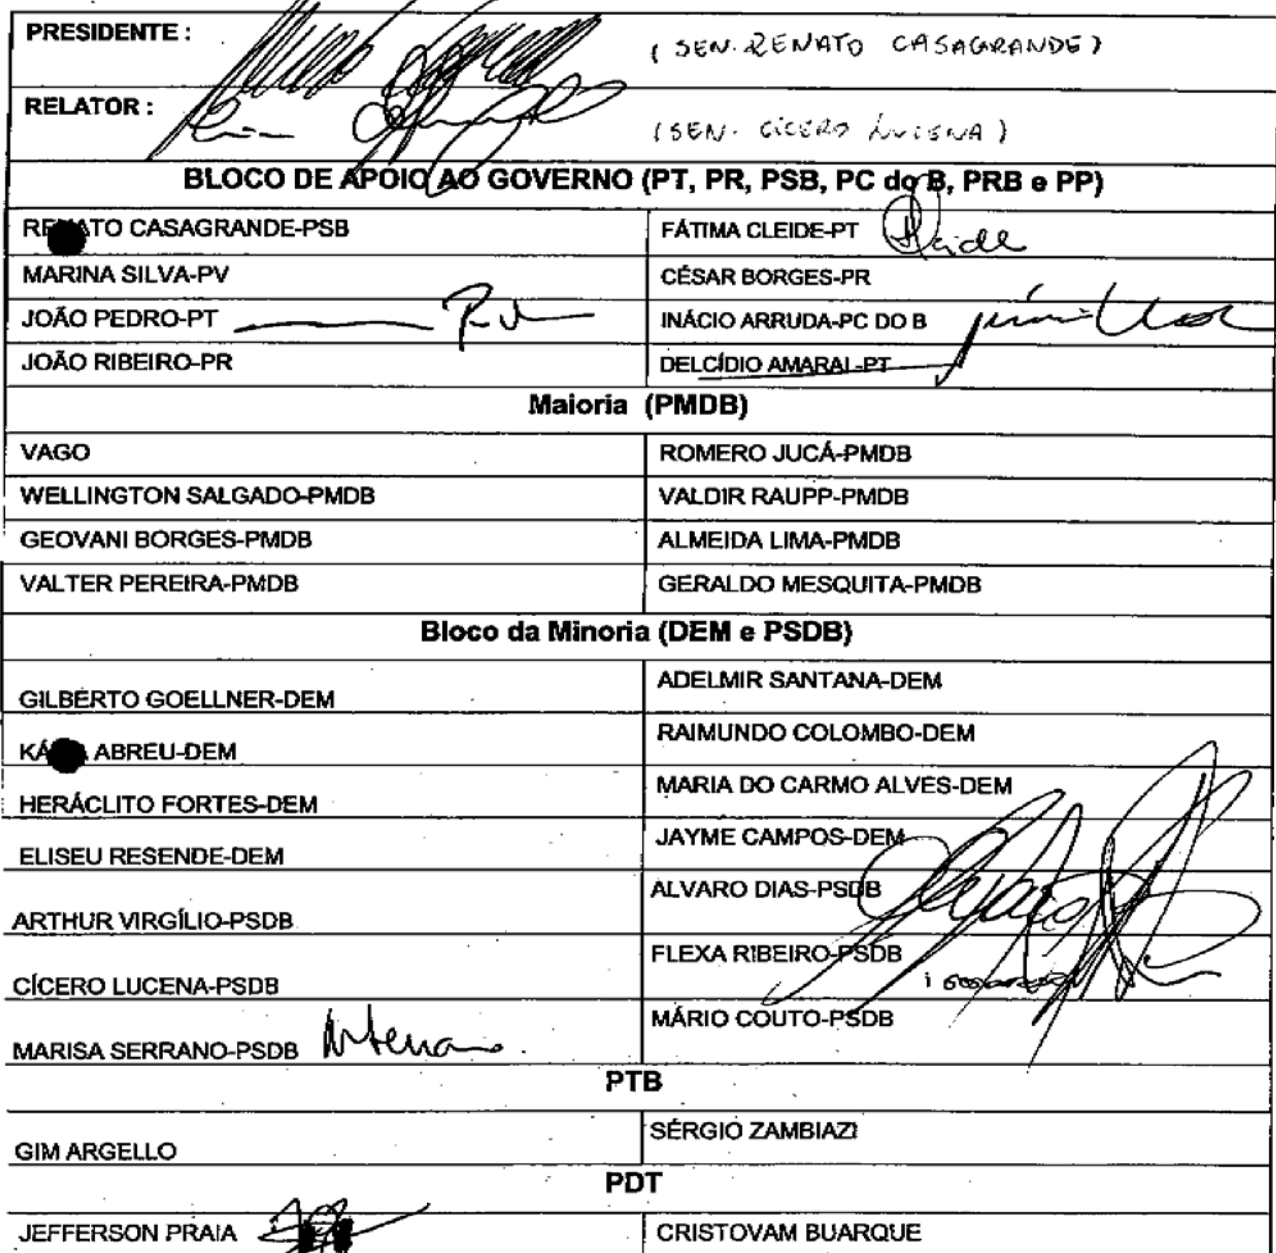 PRESIDENTE :
( SEN. RENATO CASAGRANDE)
RELATOR :
(SEN. CÍCERO LUCENA)
BLOCO DE APOIO AO GOVERNO (PT, PR, PSB, PC do B, PRB e PP)
CASAGRANDE-PSB FÁTIMA CLEIDE-PT
MARINA SILVA-PV CÉSAR BORGES-PR
JOÃO PEDRO-PT INÁCIO ARRUDA-PC DO B
JOÃO RIBEIRO-PR DELCÍDIO AMARAL-PT
Maioria (PMDB)
VAGO ROMERO JUCÁ-PMDB
WELLINGTON SALGADO-PMDB VALDIR RAUPP-PMDB
GEOVANI BORGES-PMDB ALMEIDA LIMA-PMDB
VALTER PEREIRA-PMDB GERALDO MESQUITA-PMDB
Bloco da Minoria (DEM e PSDB)
GILBERTO GOELLNER-DEM ADELMIR SANTANA-DEM
ABREU-DEM RAIMUNDO COLOMBO-DEM
HERÁCLITO FORTES-DEM MARIA DO CARMO ALVES-DEM
ELISEU RESENDE-DEM JAYME CAMPOS-DEM
ARTHUR VIRGÍLIO-PSDB ALVARO DIAS-PSDB
CÍCERO LUCENA-PSDB FLEXA RIBEIRO-PSDB
MARISA SERRANO-PSDB MÁRIO COUTO-PSDB
PTB
GIM ARGELLO SÉRGIO ZAMBIAZI
PDT
JEFFERSON PRAIA CRISTOVAM BUARQUE